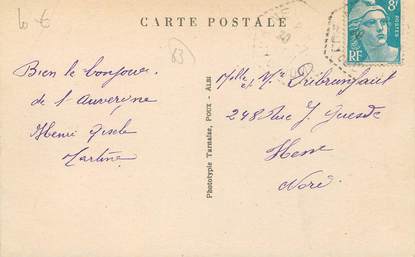 CARTE POSTALE
8F
POSTES
RF
83
Bien le bonjour
de l'Auvergne
Henri Gisele
Martine
Phototypie Tarnaise, POUX - ALBI
Melle et Mr
248 Rue J. Guesde
Hem
Nord